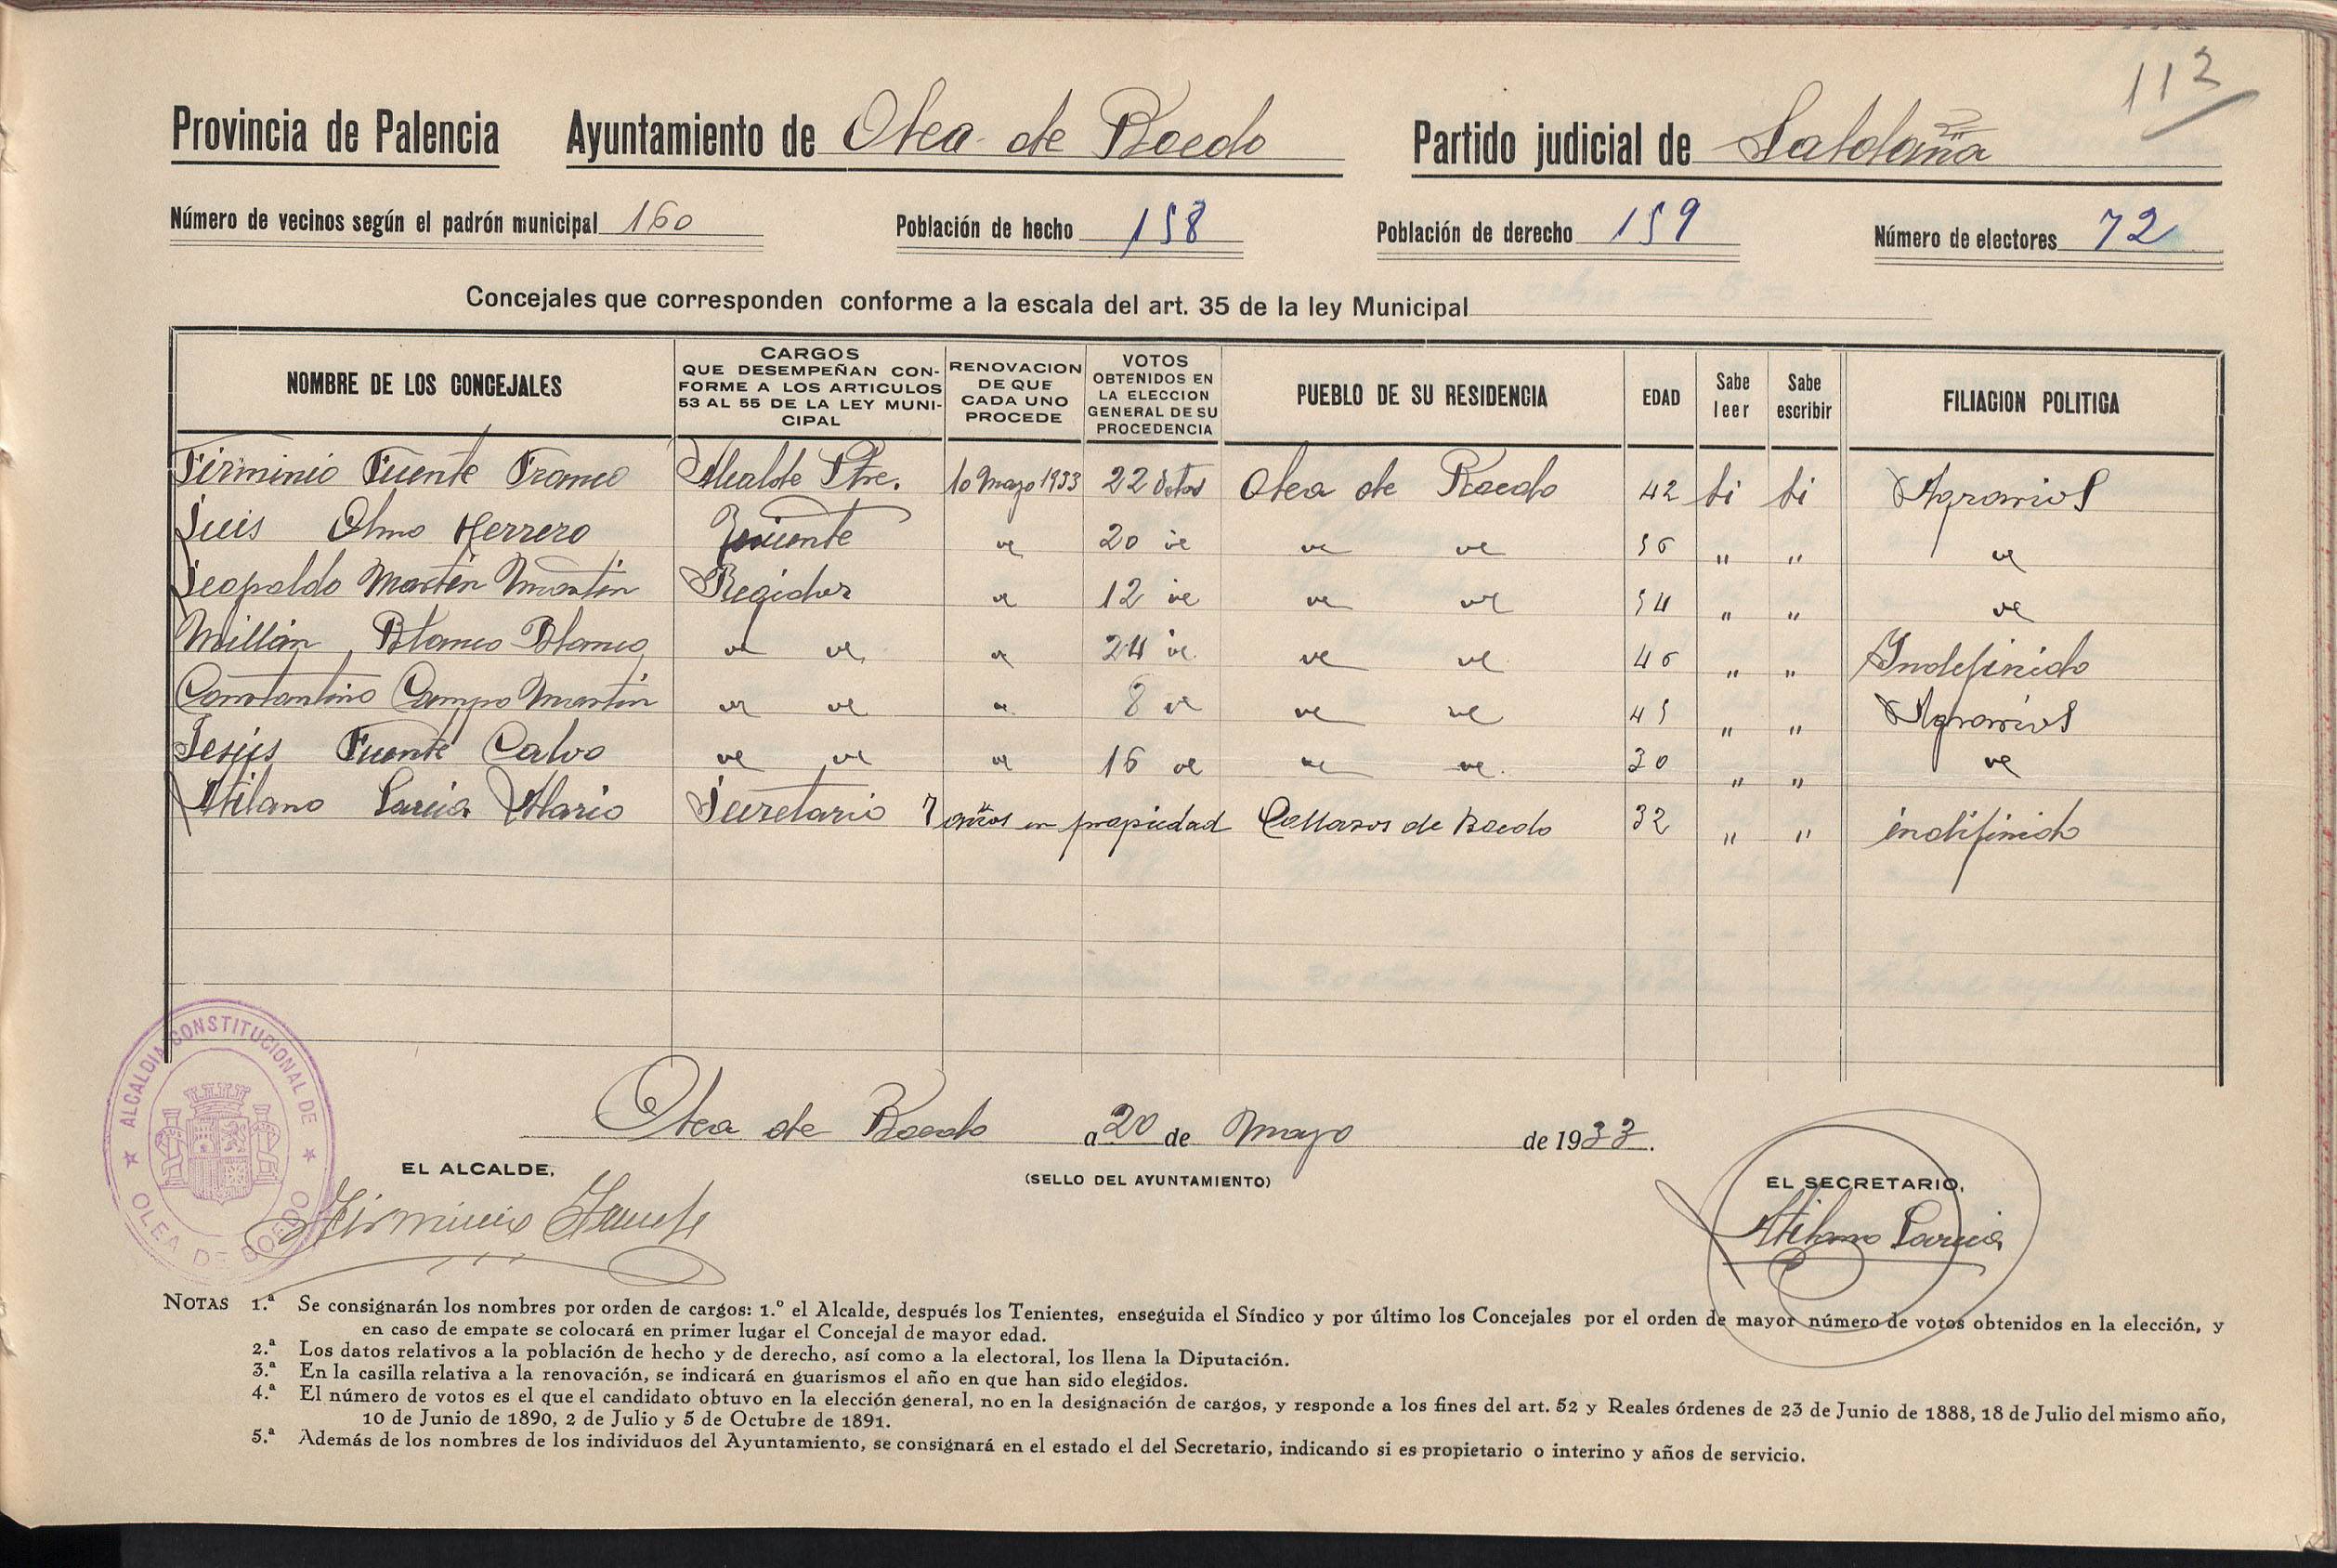 112
Provincia de Palencia Ayuntamiento de Olea de Boedo Partido judicial de Saldaña
Número de vecinos según el padrón municipal 160 Población de hecho 158 Población de derecho 159 Número de electores 72
Concejales que corresponden conforme a la escala del art. 35 de la ley Municipal
NOMBRE DE LOS CONCEJALES
CARGOS
QUE DESEMPEÑAN CON-
FORME A LOS ARTICULOS
53 AL 55 DE LA LEY MUNI-
CIPAL
RENOVACION
DE QUE
CADA UNO
PROCEDE
VOTOS
OBTENIDOS EN
LA ELECCION
GENERAL DE SU
PROCEDENCIA
PUEBLO DE SU RESIDENCIA
EDAD
Sabe
leer
Sabe
escribir
FILIACION POLITICA
Firminio Fuente Franco Alcalde Pte. 10 Mayo 1933 22 Votos Olea de Boedo 42 si si Agrarios
Luis Olmo Herrero Teniente " 20 " " " 56 " " "
Leopoldo Martín Martín Regidor " 12 " " " 54 " " "
Millán Blanco Blanco " " " 24 " " " 46 " " Indefinido
Constantino Campo Martín " " " 8 " " " 45 " " Agrarios
Jesús Fuente Calvo " " " 16 " " " 30 " " "
Atilano García Alario Secretario 7 años en propiedad Collazos de Boedo 32 " " indifinido
ALCALDIA CONSTITUCIONAL DE OLEA DE BOEDO
Olea de Boedo a 20 de Mayo de 1933.
EL ALCALDE, (SELLO DEL AYUNTAMIENTO) EL SECRETARIO,
Firminio Fuente Atilano García
NOTAS 1.ª Se consignarán los nombres por orden de cargos: 1.º el Alcalde, después los Tenientes, enseguida el Síndico y por último los Concejales por el orden de mayor número de votos obtenidos en la elección, y
en caso de empate se colocará en primer lugar el Concejal de mayor edad.
2.ª Los datos relativos a la población de hecho y de derecho, así como a la electoral, los llena la Diputación.
3.ª En la casilla relativa a la renovación, se indicará en guarismos el año en que han sido elegidos.
4.ª El número de votos es el que el candidato obtuvo en la elección general, no en la designación de cargos, y responde a los fines del art. 52 y Reales órdenes de 23 de Junio de 1888, 18 de Julio del mismo año,
10 de Junio de 1890, 2 de Julio y 5 de Octubre de 1891.
5.ª Además de los nombres de los individuos del Ayuntamiento, se consignará en el estado el del Secretario, indicando si es propietario o interino y años de servicio.